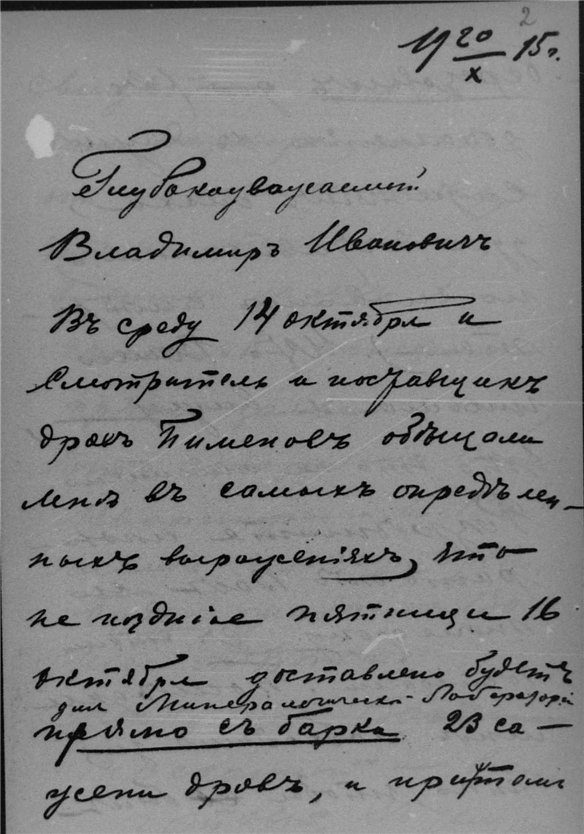 2
19 20/X 15 г.
Глубокоуважаемый
Владимиръ Ивановичъ
Въ среду 14 октября и
Смотритель и поставщикъ
дровъ Пименовъ обѣщали
мнѣ въ самыхъ опредѣлен-
ныхъ выраженіяхъ, что
не позднiе пятницы 16
октября доставлено будетъ
для Минералогическ. Лаборатории
прямо съ барки 23 са-
жени дровъ, и притомъ